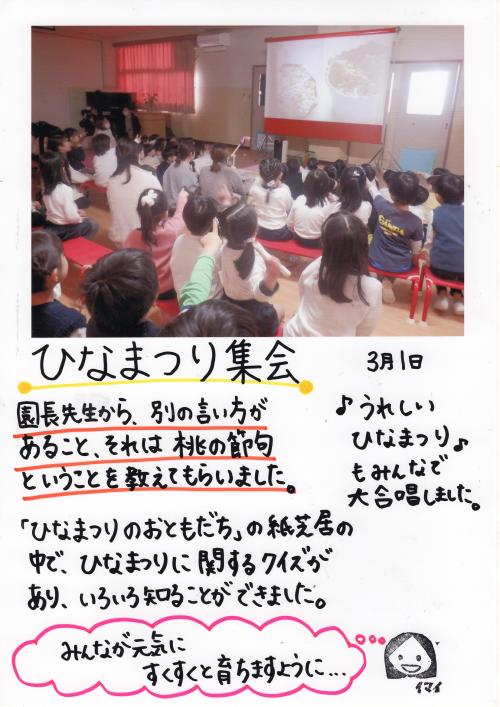 ひなまつり集会
3月1日
園長先生から、別の言い方が
あること、それは 桃の節句
ということを教えてもらいました。
♪うれしい
ひなまつり♪
もみんなで
大合唱しました。
「ひなまつりのおともだち」の紙芝居の
中で、ひなまつりに関するクイズが
あり、いろいろ知ることができました。
みんなが元気に
すくすくと育ちますように...
イマイ